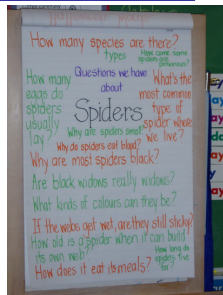 How many species are there?
types
How come some
spiders are
poisonous?
Questions we have
about
Spiders
How many
eggs do
spiders
usually
lay?
What's the
most common
type of
spider where
we live?
Why are spiders small?
Why do spiders eat blood?
Why are most spiders black?
Are black widows really widows?
What kinds of colours can they be?
If the webs get wet, are they still sticky?
How old is a spider when it can build
its own web?
How long do
spiders live
for?
How does it eat its meals?